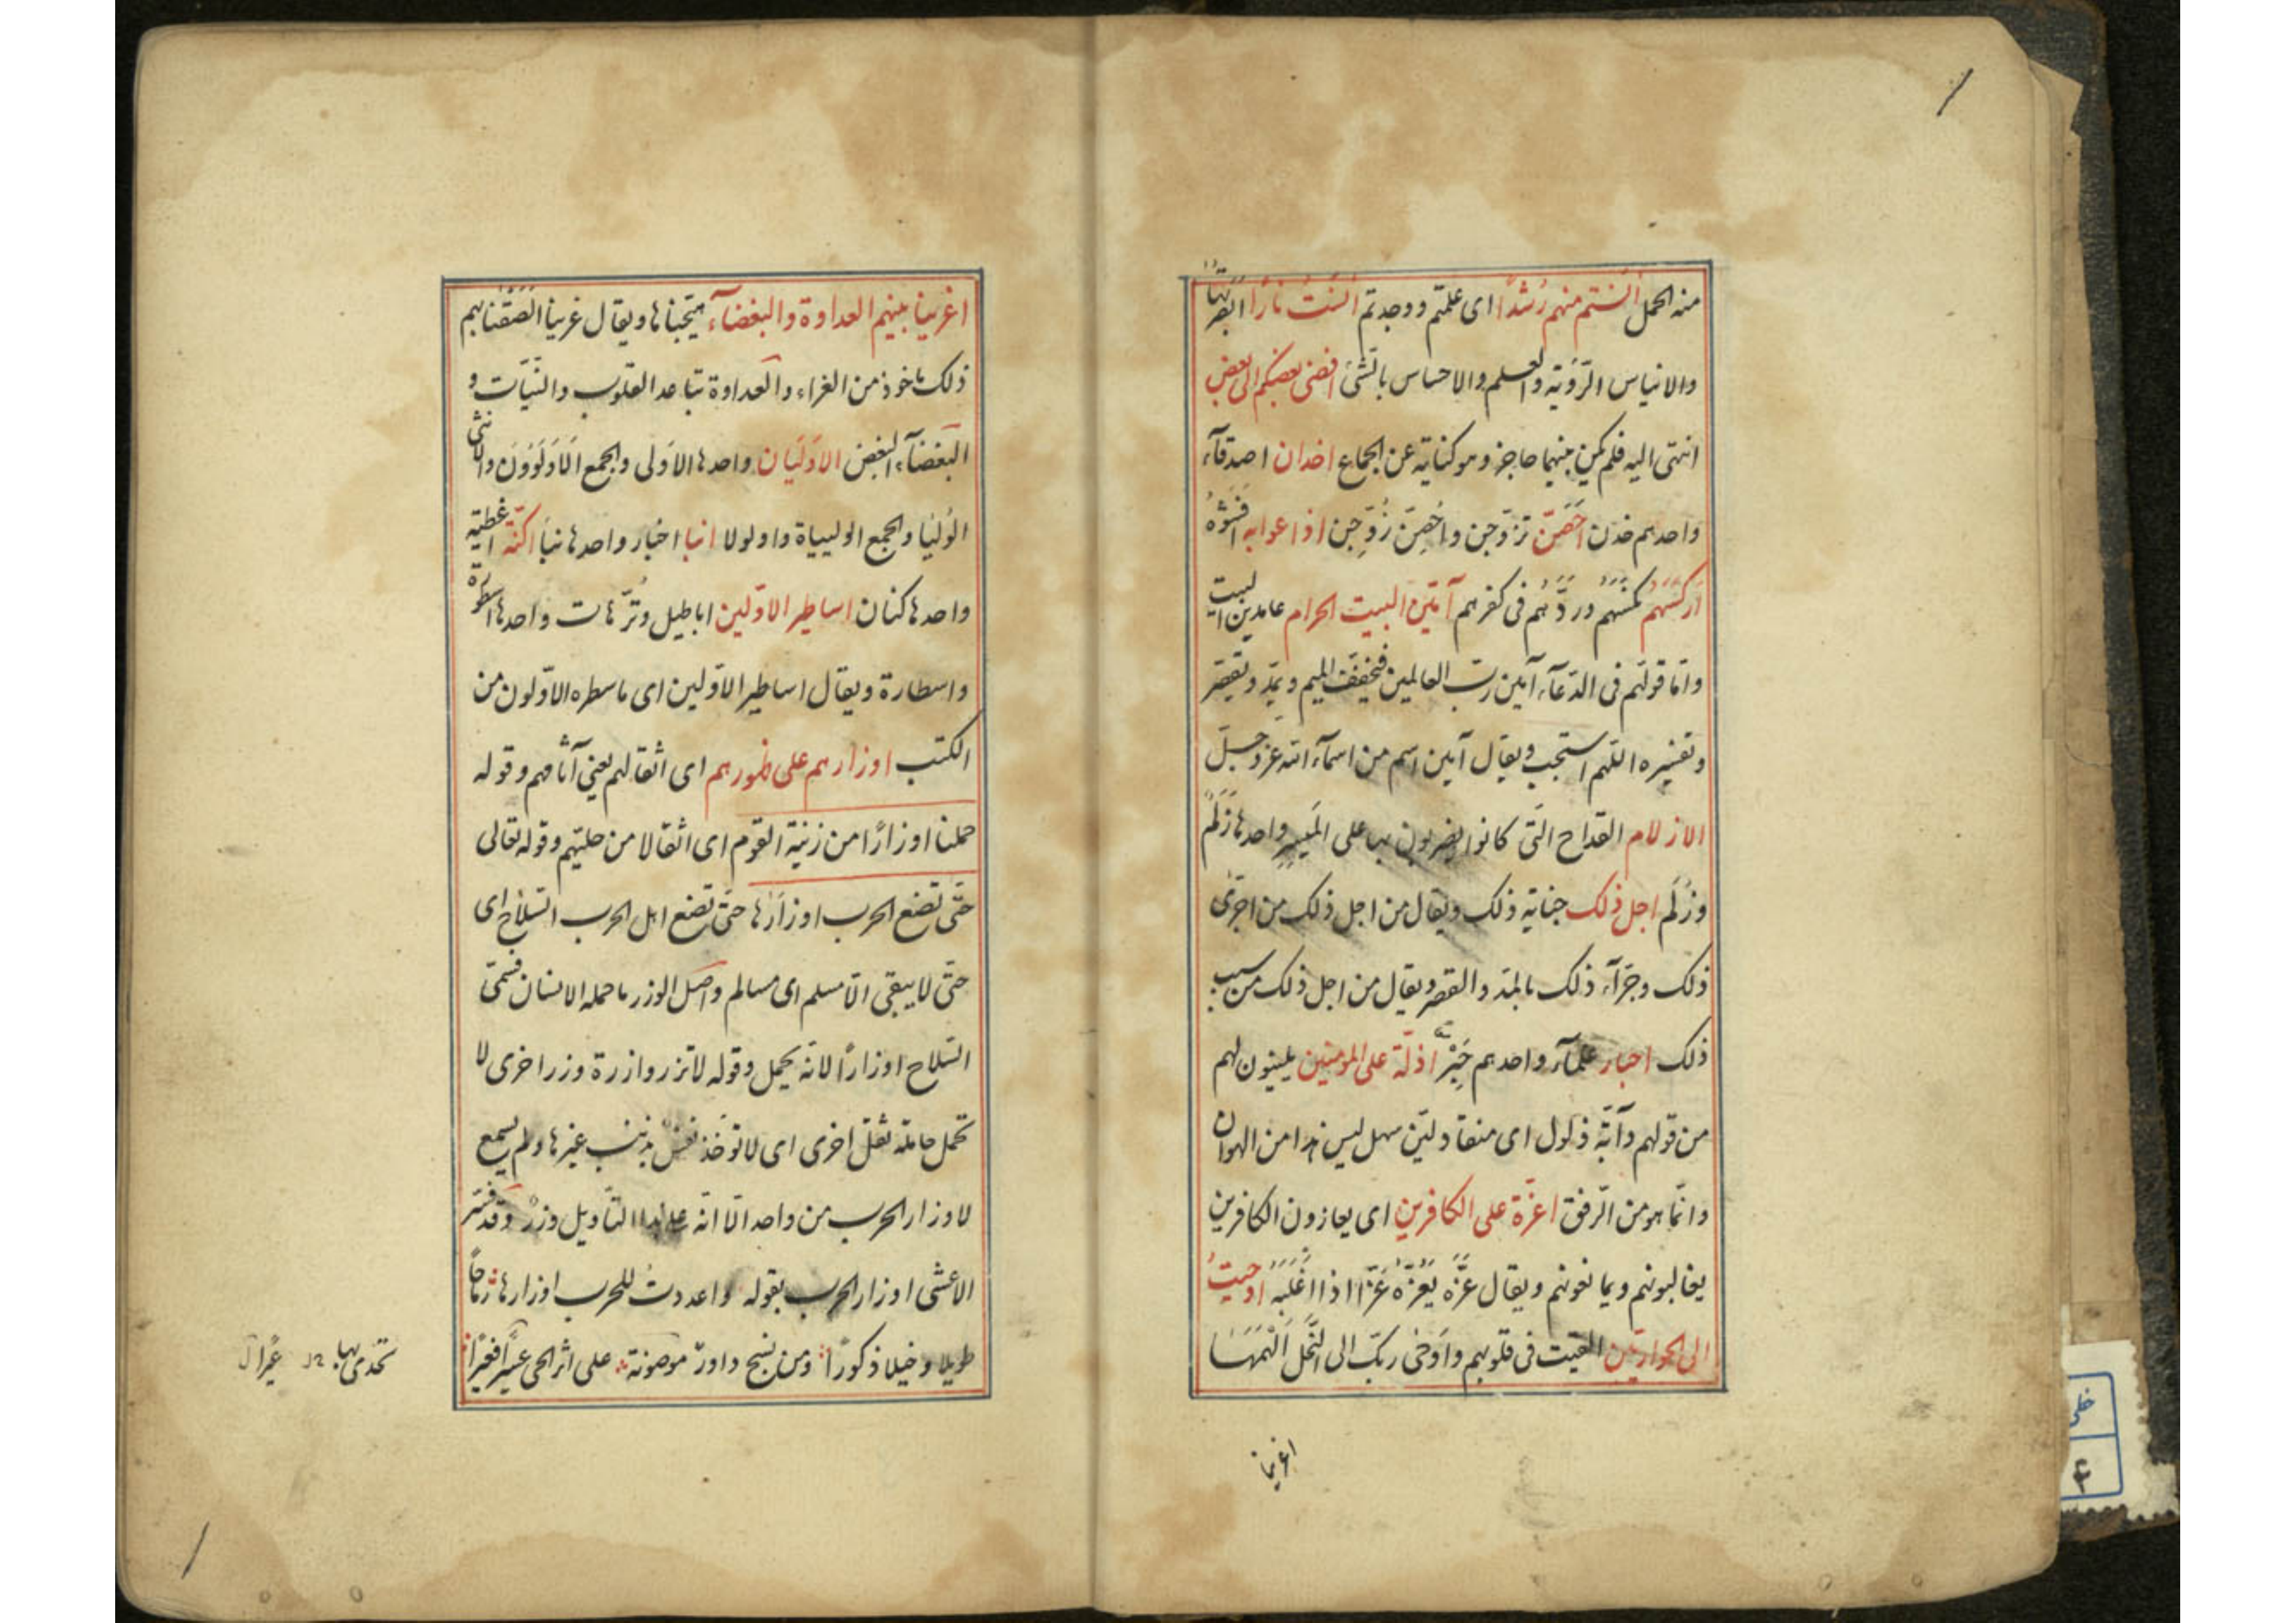 منه الحمل آنستم منهم رُشدًا ای علمتم ووجدتم آنست نارًا ابصرتها
والایناس الرّؤیة والعلم والاحساس بالشیٔ افضی بعضکم الی بعض
انتهی الیه فلم یکن بینهما حاجز وهو کنایة عن الجماع اخدان اصدقآء
واحدهم خدن اَحْصَنّ تزوّجن واُحْصِنّ زُوِّجن اذاعوا به افشوهُ
اَرکسَهُم نکّسَهُم وردَّهُم فی کفرهم آمّین البیت الحرام عامدین البیت
وامّا قولهم فی الدّعآء آمین ربّ العالمین فیخفّف المیم ویمدّ ویقصر
وتفسیره اللّهم استجب ویقال آمین اسم من اسمآء الله عزّ وجلّ
الازلام القداح الّتی کانوا یضربون بها علی المیسِر واحدها زَلَم
وزُلَم اجل ذلک جنایة ذلک ویقال من اجل ذلک من اجری
ذلک وجَرّآء ذلک بالمدّ والقصر ویقال من اجل ذلک من سبب
ذلک احبار علمآء واحدهم حَبِرْ اذلّة علی المؤمنین یلینون لهم
من قولهم دآبّة ذلول ای منقاد لیّن سهل لیس هذا من الهوان
وانّما هو من الرّفق اعزّة علی الکافرین ای یعازون الکافرین
یغالبونهم ویمانعونهم ویقال عزَّه یَعُزّهُ عَزًّا اذا غَلَبَهُ اوحیتُ
الی الحوارییّن القیت فی قلوبهم واَوحٰی ربّک الی النّحل اَلْهَمَهَا
اغرینا
اغرینا بینهم العداوة والبغضآء هیّجناها ویقال غرینا الصَقْنا بهم
ذلک ماخوذ من الغراء والعداوة تباعد القلوب والنّیّات و
البغضآء البغض الاَوْلَیَان واحدها الاَولی والجمع الاَوْلَوْونَ والانثی
الوُلیا والجمع الولییاة واولولا انبا اخبار واحدها نبأ اکنّة اغطیة
واحدها کنان اساطیر الاوّلین اباطیل وتُرّهات واحدها اسطورة
واسطارة ویقال اساطیر الاوّلین ای ما سطره الاوّلون من
الکتب اوزارهم علی ظهورهم ای اثقالهم یعنی آثامهم وقوله
حملنا اوزارًا من زینة القوم ای اثقالا من حلیّهم وقوله تعالی
حتّی تضع الحرب اوزارَها حتّی تضع اهل الحرب السّلاح ای
حتّی لا یبقی الّا مسلم ای مسالم واصل الوزر ما حمله الانسان فسمّی
السّلاح اوزارًا لانّه یحمل وقوله لا تزر وازرة وزر اخری لا
تحمل حاملة ثقل اخری ای لا تؤخذ نفس بذنب غیرها ولم یسمع
لاوزار الحرب من واحد الّا انّه علی هذا التّأویل وزرْ وقد فسّر
الاعشی اوزار الحرب بقوله واعددتُ للحرب اوزارها رماحًا
طویلا وخیلا ذکورًا ومن نسج داودْ موضونة علی اثر الحی عیرًا فعیرًا
تحدی بها
خطی
۴